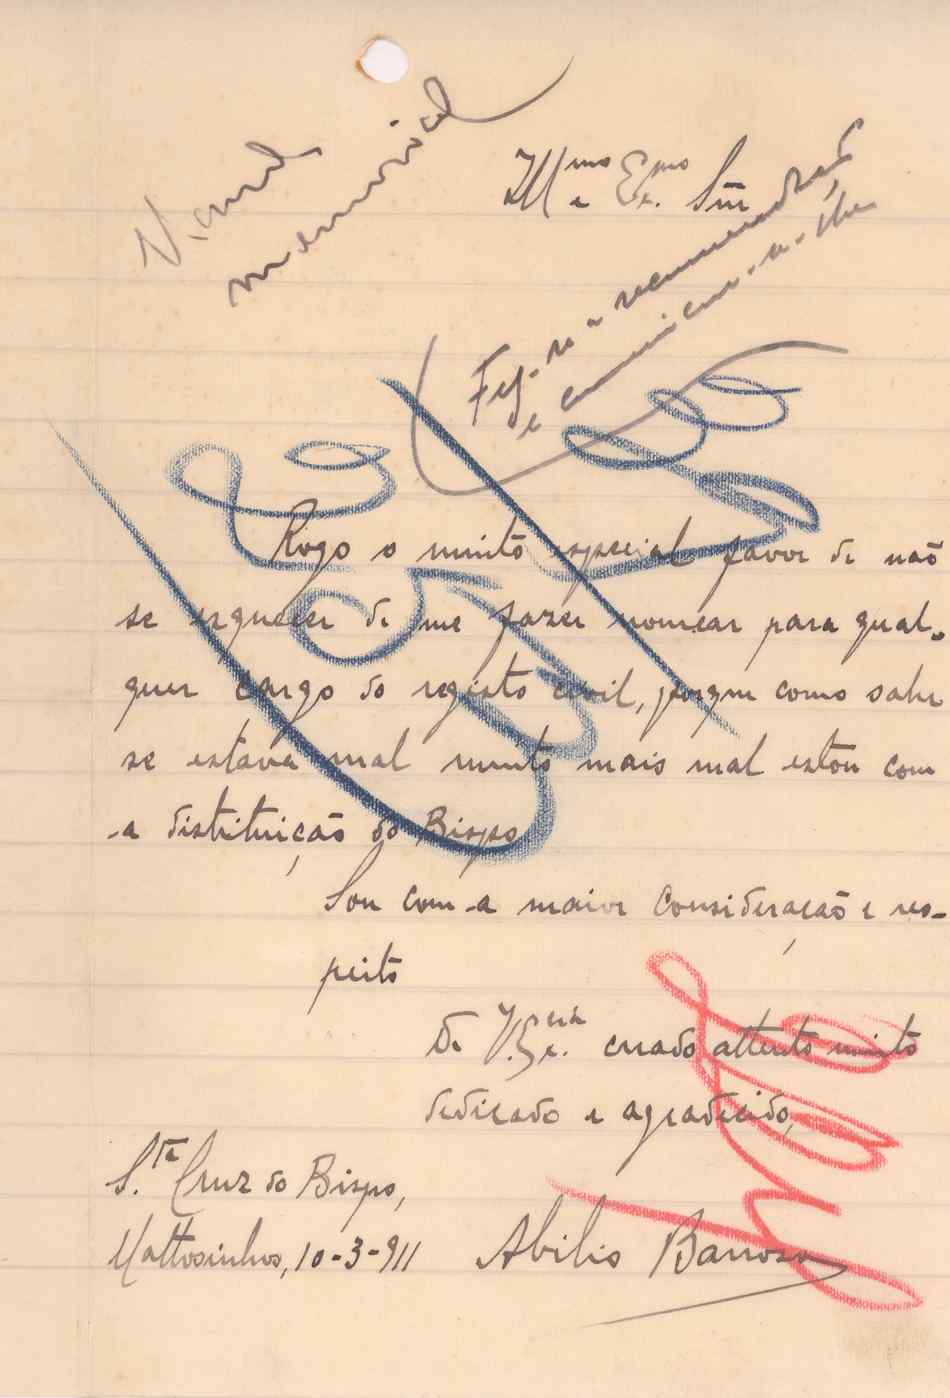 memorial
Ill.mo e Ex.mo Snr
Fez-se a recommendação
e communicou-se-lhe
Rogo o muito especial favor de não
se esquecer de me fazer nomear para qual-
quer cargo do registo civil, porque como sabe
se estava mal muito mais mal estou com
a distituição do Bispo
Sou com a maior consideração e res-
peito
De V. Ex.cia criado attento muito
dedicado e agradecido,
S.ta Cruz do Bispo,
Mattosinhos, 10-3-911 Abilio Barroso